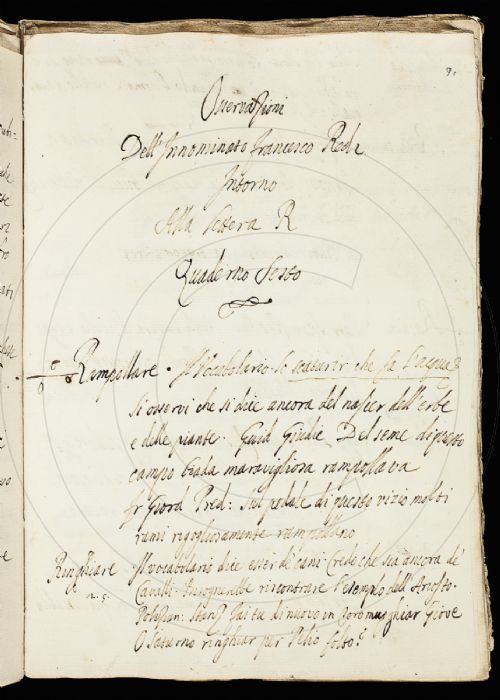 9.
Osservazioni
Dell'Innominato Francesco Redi
Intorno
Alla lettera R
Quaderno Sesto
Rampollare. Il Vocabolario lo scaturir che fa l'acque
Si osservi che si dice ancora del nascer dell'erbe
e delle piante. Guid Giudic Del seme di questo
campo biada maravigliosa rampollava
fr Giord Pred: Sul pedale di questo vizio molti
rami rigogliosamente rampollano
Ringhiare Il vocabolario dice esser de' cani. Credo che sia ancora de'
n. 5. Cavalli. Bisognerebbe riscontrare l'esemplo dell'Ariosto.
Polizian: Stanz Fai tu di nuovo in toro mugghiar Giove
O Saturno ringhiar per Pelio folto?